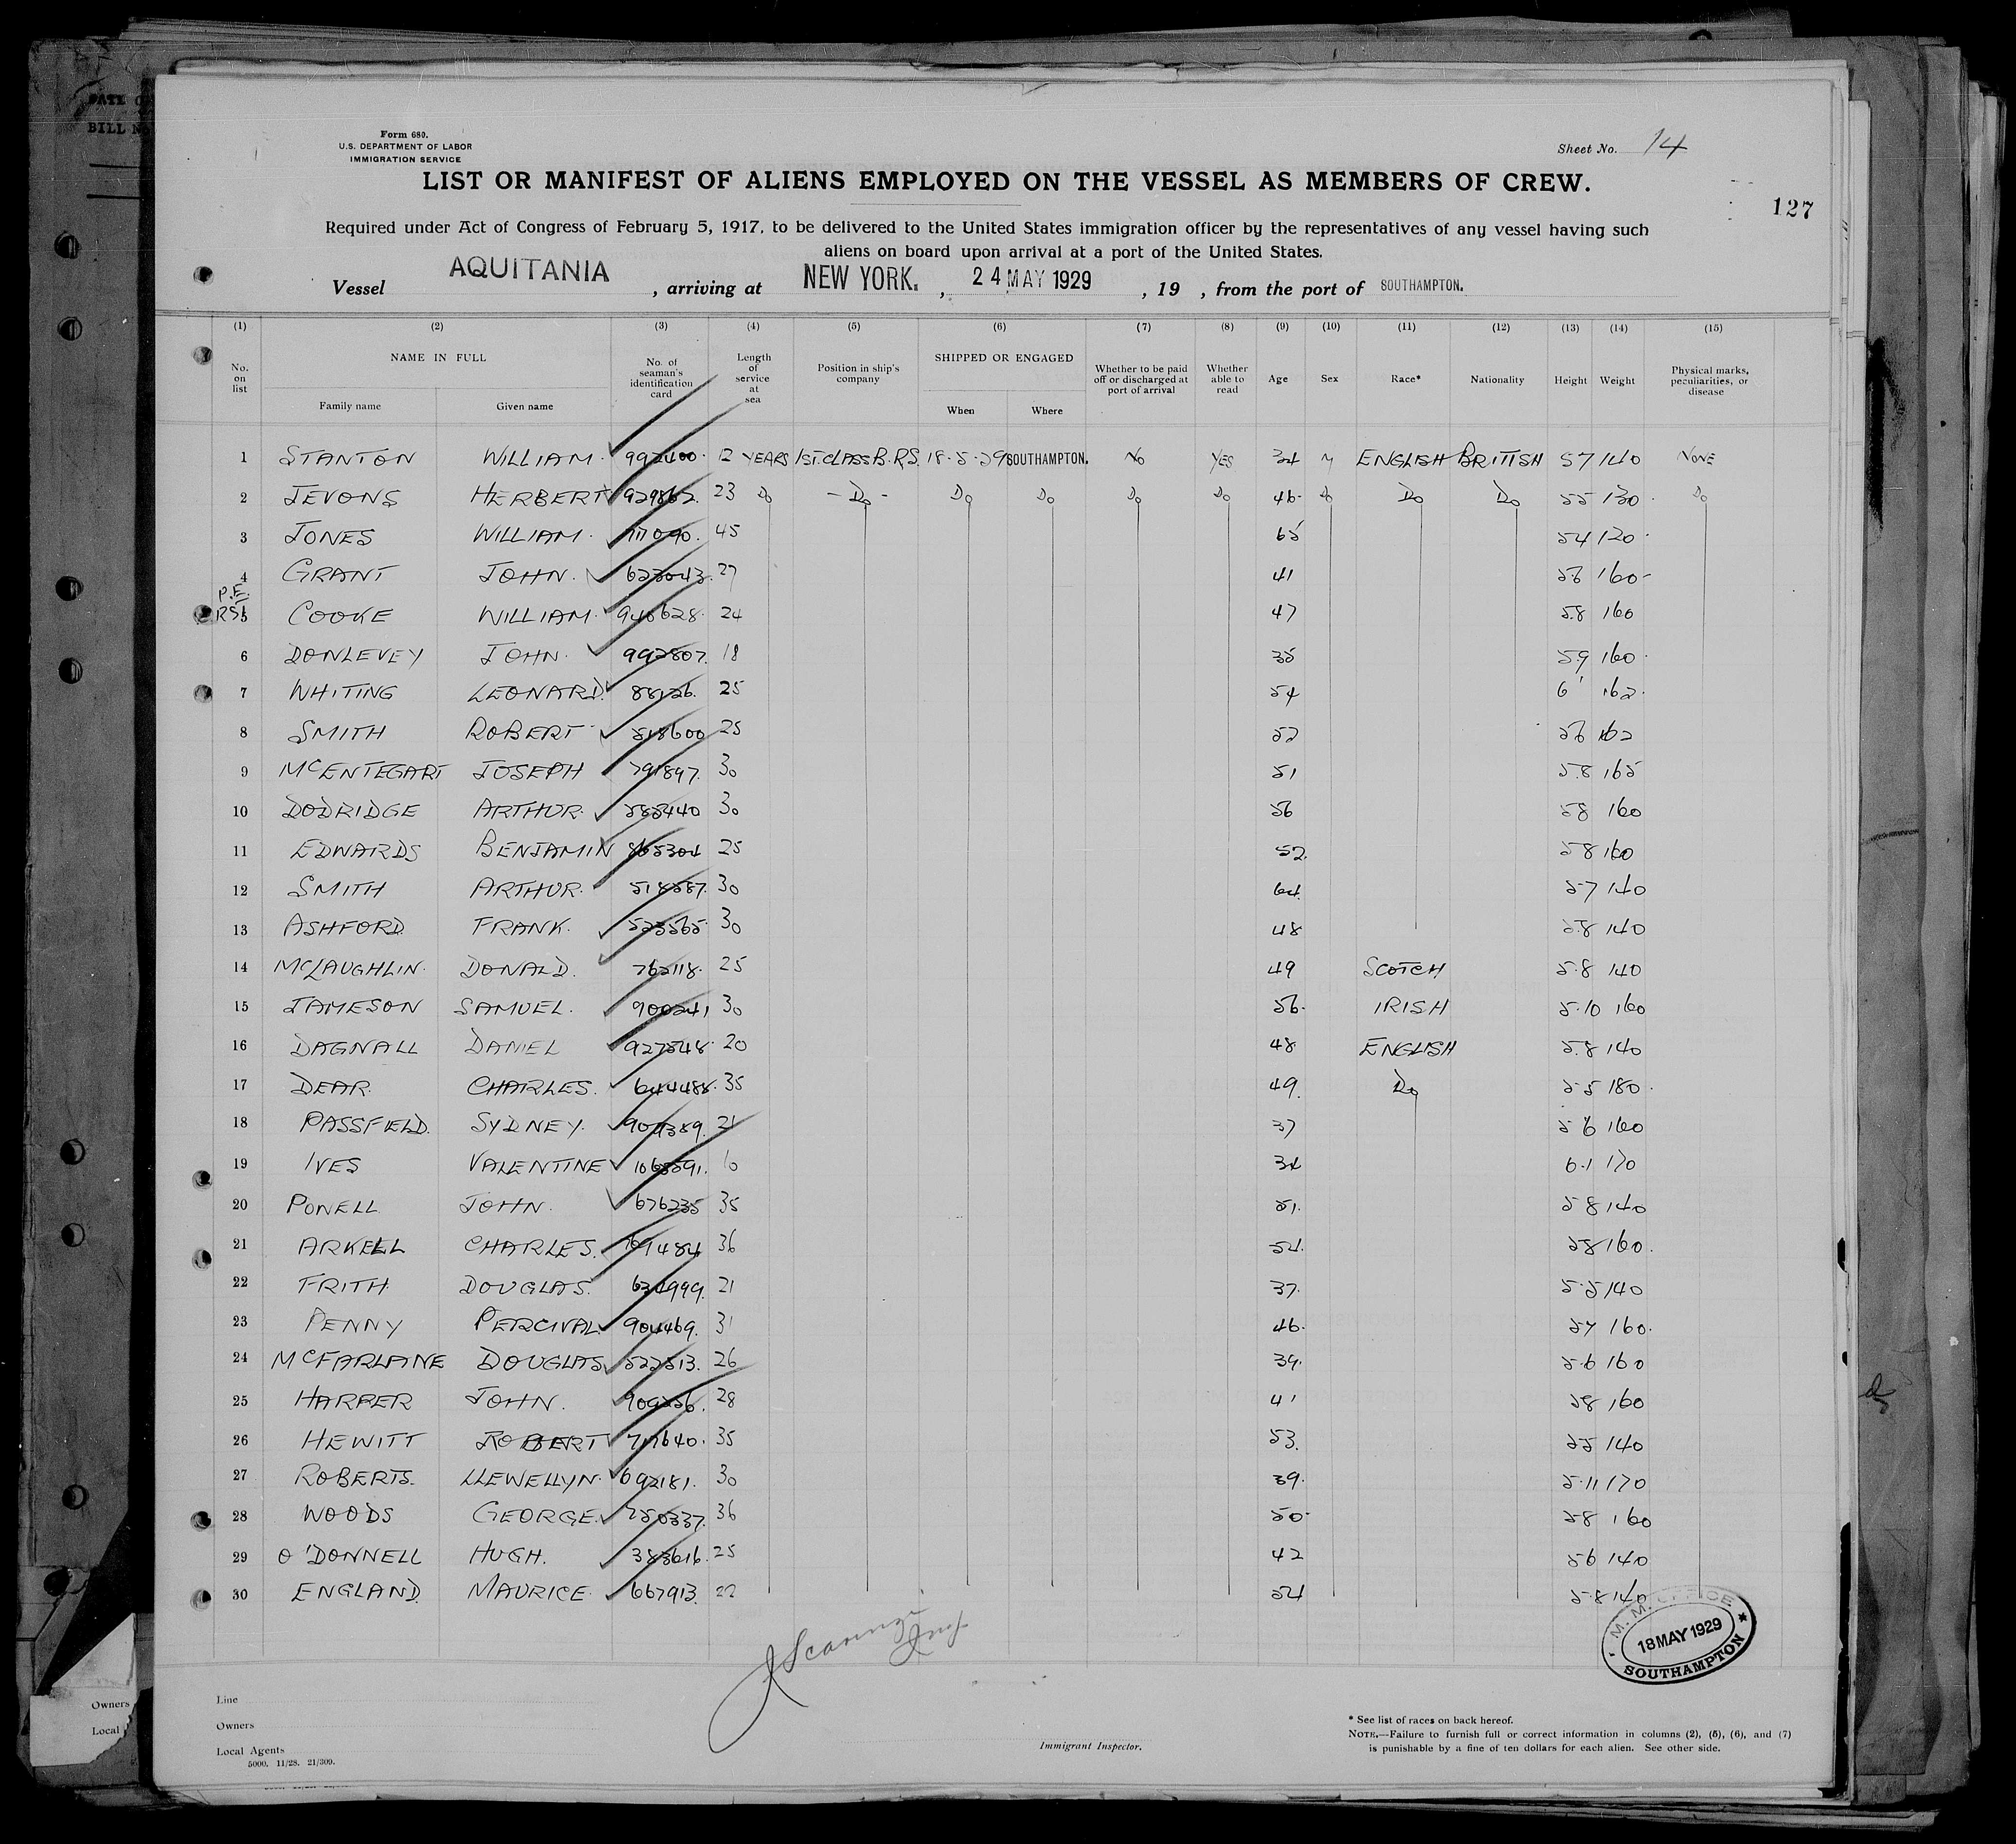 DATE O
BILL No
Form 680.
U.S. DEPARTMENT OF LABOR
IMMIGRATION SERVICE
Sheet No. 14
LIST OR MANIFEST OF ALIENS EMPLOYED ON THE VESSEL AS MEMBERS OF CREW.
127
Required under Act of Congress of February 5, 1917, to be delivered to the United States immigration officer by the representatives of any vessel having such
aliens on board upon arrival at a port of the United States.
Vessel AQUITANIA, arriving at NEW YORK., 24 MAY 1929, 19 , from the port of SOUTHAMPTON.
(1) (2) (3) (4) (5) (6) (7) (8) (9) (10) (11) (12) (13) (14) (15)
No. on list NAME IN FULL Family name Given name No. of seaman's identification card Length of service at sea Position in ship's company SHIPPED OR ENGAGED When Where Whether to be paid off or discharged at port of arrival Whether able to read Age Sex Race* Nationality Height Weight Physical marks, peculiarities, or disease
1 STANTON WILLIAM. 992400. 12 YEARS 1ST.CLASS B.R.S. 18-5-29 SOUTHAMPTON. No YES 34 M ENGLISH BRITISH 57 140 NONE
2 JEVONS HERBERT 929862. 23 Do - Do - Do Do Do Do 46- Do Do Do 55 130. Do
3 JONES WILLIAM. 45 65 54 120.
4 GRANT JOHN. 623043. 27 41 56 160-
P.E.
RS
5 COOKE WILLIAM. 940628. 24 47 5.8 160
6 DONLEVEY JOHN. 992807. 18 35 5.9 160.
7 WHITING LEONARD. 88126. 25 54 6' 162.
8 SMITH ROBERT 818600 25 52 56 162
9 McENTEGART JOSEPH 791897. 30 51 5.8 165
10 DODRIDGE ARTHUR. 585440 30 56 58 160
11 EDWARDS BENJAMIN 865304 25 52. 58 160
12 SMITH ARTHUR. 518587. 30 64. 5-7 140
13 ASHFORD FRANK. 523565. 30 48 5.8 140
14 McLAUGHLIN. DONALD. 762118. 25 49 SCOTCH 5.8 140
15 JAMESON SAMUEL. 900241 30 56. IRISH 5.10 160
16 DAGNALL DANIEL 927548. 20 48 ENGLISH 5.8 140
17 DEAR. CHARLES. 644488. 35 49. Do 5-5 180.
18 PASSFIELD. SYDNEY. 909389. 21 37 56 160
19 IVES VALENTINE 1065591. 10 34 6.1 170
20 POWELL JOHN. 676235 35 51. 58 140
21 ARKELL CHARLES. 36 54. 58 160.
22 FRITH. DOUGLAS. 634999. 21 37. 5.5 140
23 PENNY PERCIVAL 904469. 31 46. 57 160.
24 McFARLAINE DOUGLAS 522513. 26 39. 5.6 160
25 HARPER JOHN. 909256. 28 41 58 160
26 HEWITT ROBERT 717640. 35 53. 55 140
27 ROBERTS. LLEWELLYN. 692181. 30 39. 5.11 170
28 WOODS GEORGE. 750337. 36 50- 58 160
29 O'DONNELL HUGH. 383616. 25 42 56 140
30 ENGLAND. MAURICE. 667913. 22 54 5.8 140
M.M. OFFICE
18 MAY 1929
SOUTHAMPTON
Line
Owners
Local Agents
5000. 11/28. 21/309.
Immigrant Inspector.
* See list of races on back hereof.
NOTE.—Failure to furnish full or correct information in columns (2), (5), (6), and (7)
is punishable by a fine of ten dollars for each alien. See other side.
Owners
Local